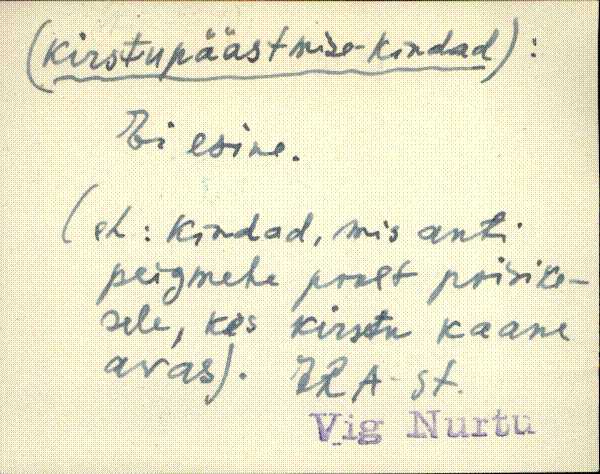 (kirstupäästmise-kindad):
Ei esine.
(eh: kindad, mis anti
peigmehe poolt poisike-
sele, kes kirstu kaane
avas). ERA-st.
Vig Nurtu